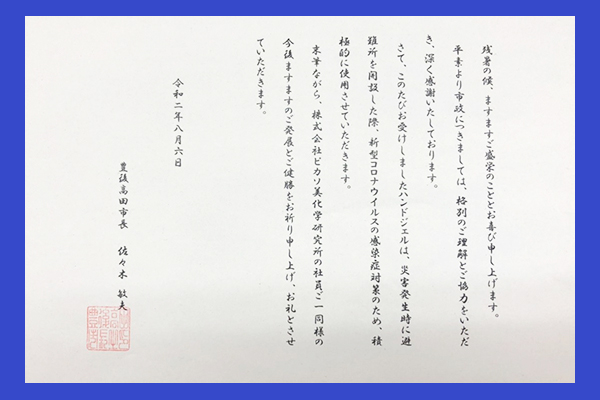 残暑の候、ますますご盛栄のこととお喜び申し上げます。
平素より市政につきましては、格別のご理解とご協力をいただ
き、深く感謝いたしております。
さて、このたびお受けしましたハンドジェルは、災害発生時に避
難所を開設した際、新型コロナウイルスの感染症対策のため、積
極的に使用させていただきます。
末筆ながら、株式会社ピカソ美化学研究所の社員ご一同様の
今後ますますのご発展とご健勝をお祈り申し上げ、お礼とさせ
ていただきます。
令和二年八月六日
豊後高田市長 佐々木 敏夫